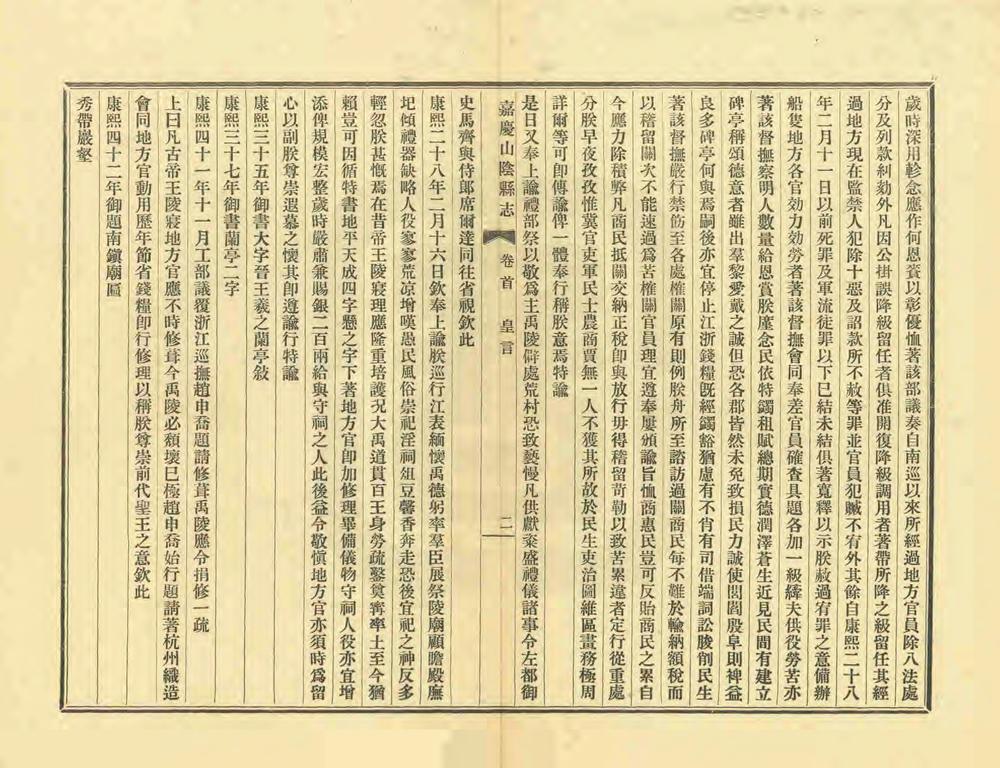 歲時深用軫念應作何恩賚以彰優恤著該部議奏自南巡以來所經過地方官員除八法處
分及列款糾劾外凡因公掛誤降級留任者俱准開復降級調用者著帶所降之級留任其經
過地方現在監禁人犯除十惡及詔款所不赦等罪並官員犯贓不宥外其餘自康熙二十八
年二月十一日以前死罪及軍流徒罪以下已結未結俱著寬釋以示朕赦過宥罪之意備辦
船隻地方各官効力効勞者著該督撫會同奉差官員確查具題各加一級縴夫供役勞苦亦
著該督撫察明人數量給恩賞朕廑念民依特蠲租賦總期實德潤澤蒼生近見民間有建立
碑亭稱頌德意者雖出羣黎愛戴之誠但恐各郡皆然未免致損民力誠使閭閻殷阜則裨益
良多碑亭何與焉嗣後亦宜停止江浙錢糧旣經蠲豁猶慮有不肖有司借端詞訟朘削民生
著該督撫嚴行禁飭至各處榷關原有則例朕舟所至諮訪過關商民每不難於輸納額稅而
以稽留關次不能速過爲苦榷關官員理宜遵奉屢頒諭旨恤商惠民豈可反貽商民之累自
今應力除積弊凡商民抵關交納正稅卽與放行毋得稽留苛勒以致苦累違者定行從重處
分朕早夜孜孜惟冀官吏軍民士農商賈無一人不獲其所故於民生吏治圖維區畫務極周
詳爾等可卽傳諭俾一體奉行稱朕意焉特諭
是日又奉上諭禮部祭以敬爲主禹陵僻處荒村恐致褻慢凡供獻粢盛禮儀諸事令左都御
嘉慶山陰縣志 卷首 皇言 二
史馬齊與侍郎席爾達同往省視欽此
康熙二十八年二月十六日欽奉上諭朕巡行江表緬懷禹德躬率羣臣展祭陵廟顧瞻殿廡
圮傾禮器缺略人役寥寥荒凉增嘆愚民風俗崇祀淫祠俎豆馨香奔走恐後宜祀之神反多
輕忽朕甚慨焉在昔帝王陵寢理應隆重培護况大禹道貫百王身勞疏鑿奠寗率土至今猶
賴豈可因循特書地平天成四字懸之宇下著地方官卽加修理畢備儀物守祠人役亦宜增
添俾規模宏整歲時嚴肅兼賜銀二百兩給與守祠之人此後益令敬愼地方官亦須時爲留
心以副朕尊崇遐慕之懷其卽遵諭行特諭
康熙三十五年御書大字晉王羲之蘭亭敍
康熙三十七年御書蘭亭二字
康熙四十一年十一月工部議覆浙江巡撫趙申喬題請修葺禹陵應令捐修一疏
上曰凡古帝王陵寢地方官應不時修葺今禹陵必頽壞巳極趙申喬始行題請著杭州織造
會同地方官動用歷年節省錢糧卽行修理以稱朕尊崇前代聖王之意欽此
康熙四十二年御題南鎭廟匾
秀帶巖壑